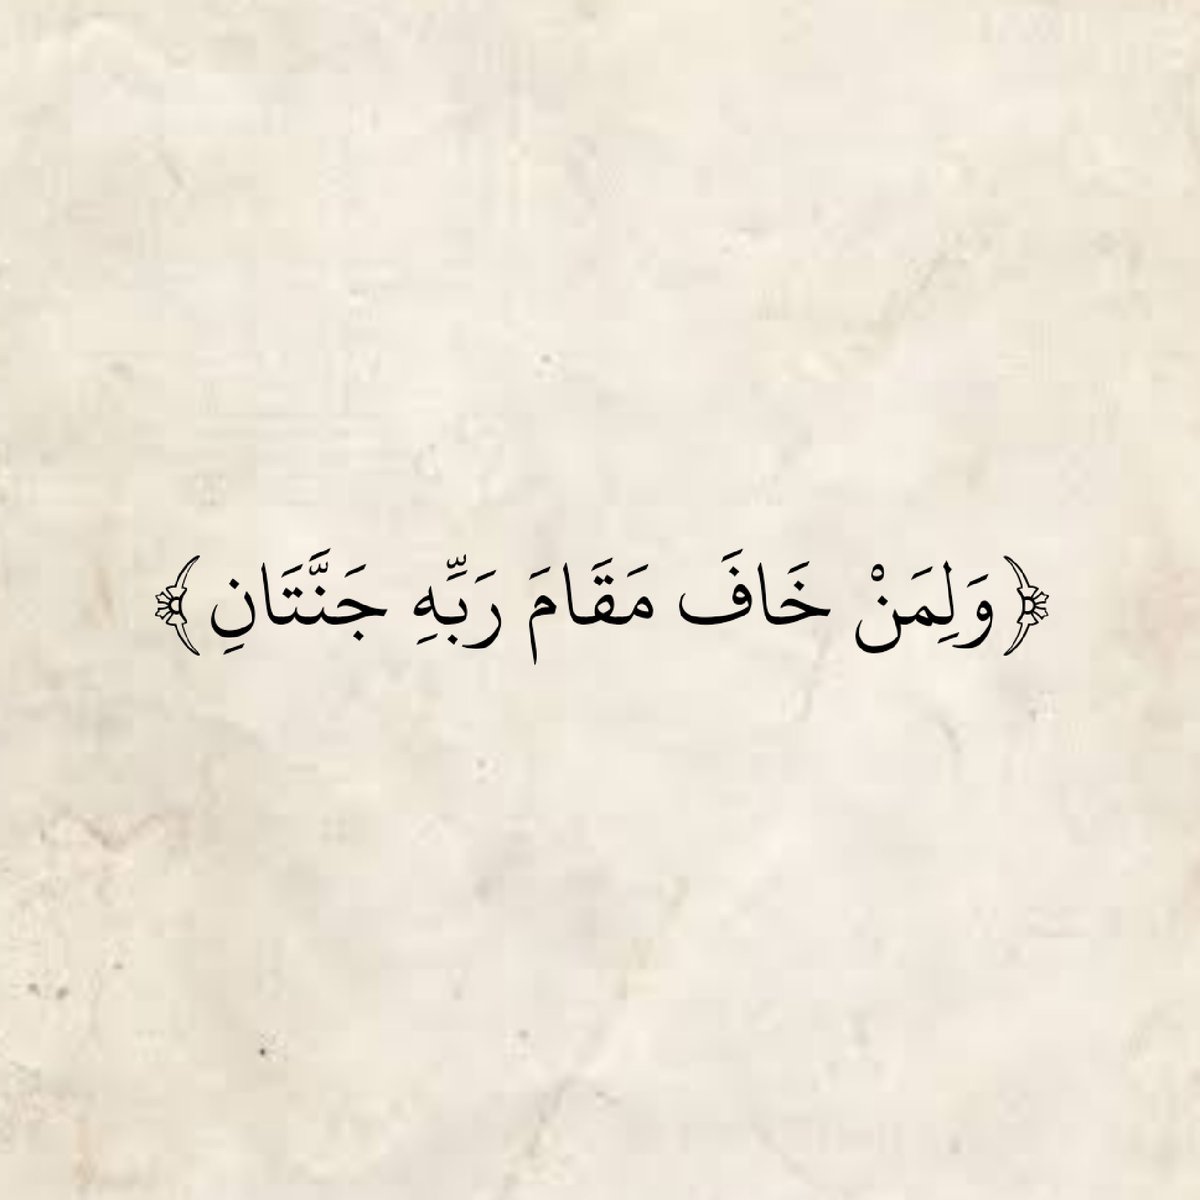 ﴿وَلِمَنْ خَافَ مَقَامَ رَبِّهِ جَنَّتَانِ﴾